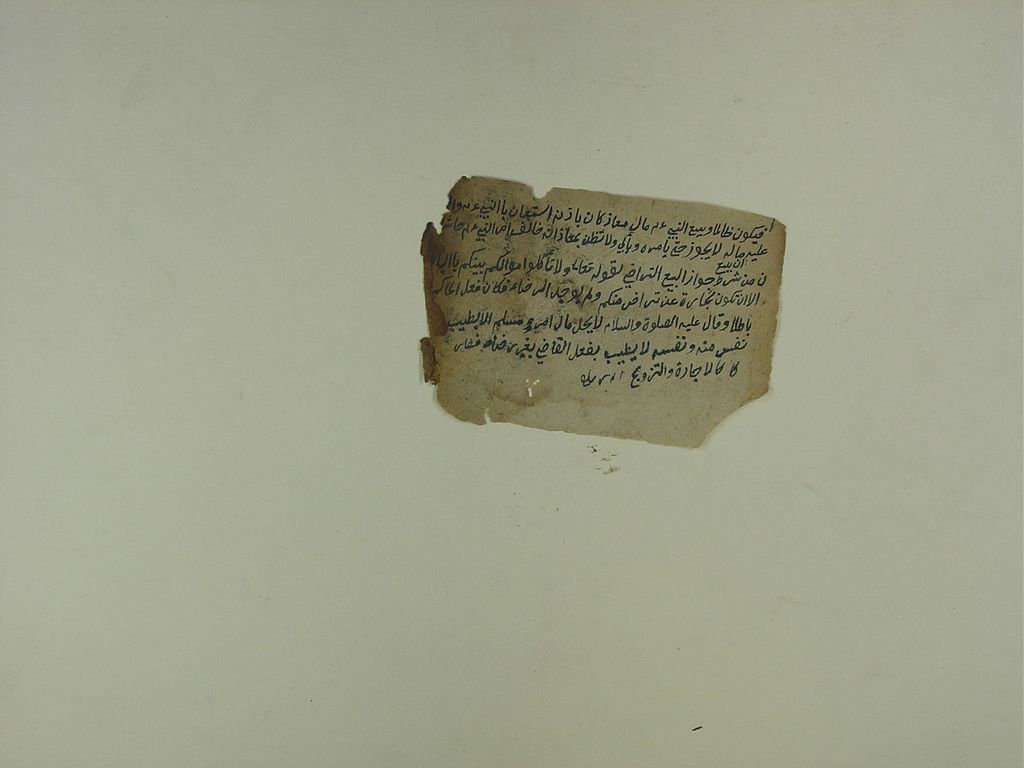 فيكون ظالما وبيع النبي عم مال معاذ كان باذنه استعان بالنبي عم
عليه ماله لا يجوز حتى يامره ويأبى ولا تظن بمعاذ انه خالف امر النبي عم
ن من شرط جواز البيع التراضي لقوله تعالى ولا تأكلوا اموالكم بينكم
ان يبيع
الا ان تكون تجارة عن تراض منكم ولم يوجد الرضاء فكان فعل الحاكم
باطلا وقال عليه الصلوة والسلام لا يحل مال امرء مسلم الا بطيب
نفس منه ونفسه لا يطيب بفعل القاضي بغير رضاه فصار
كالاجارة والتزويج